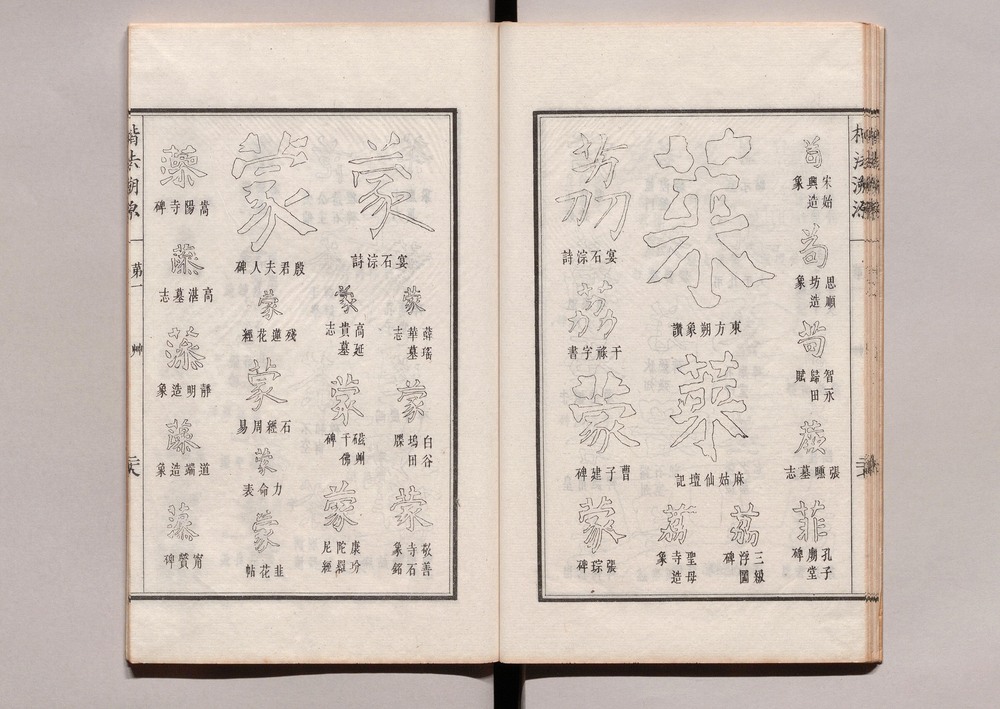 苟
宋始興造象
苟
思順坊造象
苟
智永歸田賦
張墓志
菲
孔子廟堂碑
萊
東方朔象讚
萊
麻姑仙壇記
荔
三級浮圖碑
荔
聖母寺造象
荔
宴石淙詩
荔
干祿字書
蒙
曹子建碑
蒙
張琮碑
蒙
宴石淙詩
蒙
薛瑤華墓志
蒙
白谷塢田牒
蒙
敬善寺石象銘
蒙
高延貴墓志
蒙
磁州千佛碑
蒙
陀羅尼經
蒙
殷君夫人碑
蒙
殘蓮花經
蒙
石經周易
蒙
力命表
蒙
韭花帖
藻
嵩陽寺碑
高湛墓志
靜明造象
道端造象
甯贙碑
楷法溯源
第一
艸